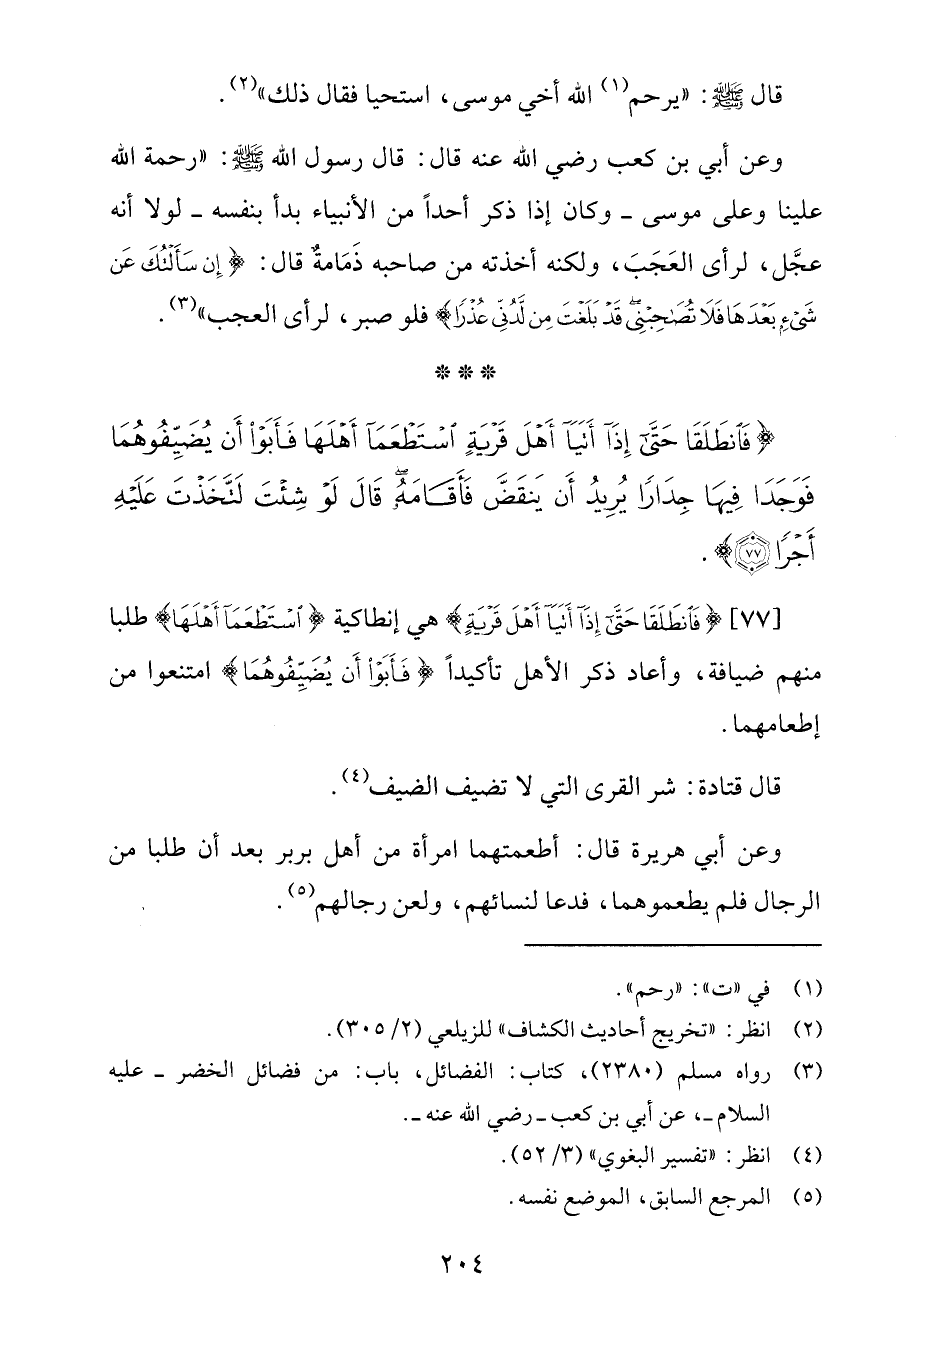 قال ﷺ: «يرحم(١) الله أخي موسى، استحيا فقال ذلك»(٢).
وعن أبي بن كعب رضي الله عنه قال: قال رسول الله ﷺ: «رحمة الله
علينا وعلى موسى ـ وكان إذا ذكر أحداً من الأنبياء بدأ بنفسه ـ لولا أنه
عجَّل، لرأى العَجَبَ، ولكنه أخذته من صاحبه ذَمَامةٌ قال: ﴿إِن سَأَلْتُكَ عَن
شَيْءٍ بَعْدَهَا فَلَا تُصَٰحِبْنِيۖ قَدْ بَلَغْتَ مِن لَّدُنِّي عُذْرًا﴾ فلو صبر، لرأى العجب»(٣).
❊ ❊ ❊
﴿فَٱنطَلَقَا حَتَّىٰٓ إِذَآ أَتَيَآ أَهْلَ قَرْيَةٍ ٱسْتَطْعَمَآ أَهْلَهَا فَأَبَوْا۟ أَن يُضَيِّفُوهُمَا
فَوَجَدَا فِيهَا جِدَارًا يُرِيدُ أَن يَنقَضَّ فَأَقَامَهُۥۖ قَالَ لَوْ شِئْتَ لَتَّخَذْتَ عَلَيْهِ
أَجْرًا ٧٧﴾.
[٧٧] ﴿فَٱنطَلَقَا حَتَّىٰٓ إِذَآ أَتَيَآ أَهْلَ قَرْيَةٍ﴾ هي إنطاكية ﴿ٱسْتَطْعَمَآ أَهْلَهَا﴾ طلبا
منهم ضيافة، وأعاد ذكر الأهل تأكيداً ﴿فَأَبَوْا۟ أَن يُضَيِّفُوهُمَا﴾ امتنعوا من
إطعامهما.
قال قتادة: شر القرى التي لا تضيف الضيف(٤).
وعن أبي هريرة قال: أطعمتهما امرأة من أهل بربر بعد أن طلبا من
الرجال فلم يطعموهما، فدعا لنسائهم، ولعن رجالهم(٥).
(١) في «ت»: «رحم».
(٢) انظر: «تخريج أحاديث الكشاف» للزيلعي (٢/ ٣٠٥).
(٣) رواه مسلم (٢٣٨٠)، كتاب: الفضائل، باب: من فضائل الخضر ـ عليه
السلام ـ، عن أبي بن كعب ـ رضي الله عنه ـ.
(٤) انظر: «تفسير البغوي» (٣/ ٥٢).
(٥) المرجع السابق، الموضع نفسه.
٢٠٤